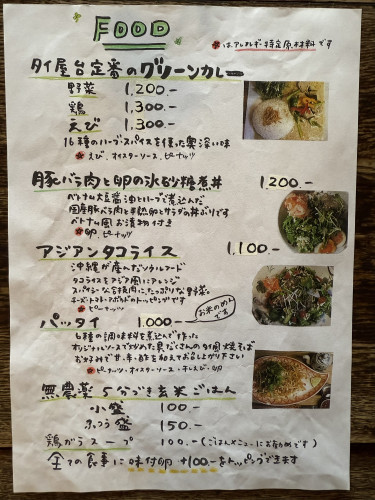 FOOD
は、アレルギー特定原材料です
タイ屋台定番のグリーンカレー
野菜 1,200.-
鶏 1,300.-
えび 1,300.-
16種のハーブ・スパイスを使った奥深い味
えび、オイスターソース、ピーナッツ
豚バラ肉と卵の氷砂糖煮丼 1,200.-
ベトナム大豆醤油とハーブで煮込んだ
国産豚バラ肉と半熟卵とサラダの丼ぶりです
ベトナム風お漬物付き
卵 ピーナッツ
アジアンタコライス 1,100.-
沖縄が産んだソウルフード
タコライスをアジア風にアレンジ
スパイシーな合挽肉にたっぷりな野菜。
チーズ・トマト・アボカドのトッピングです
ピーナッツ
パッタイ 1,000.-
お米のめん
です
6種の調味料を煮込んで作った
オリジナルソースで炒めた具だくさんのタイ風焼そば
お好みで
を加えてお召し上がり下さい
ピーナッツ・オイスターソース・干しえび・卵
無農薬5分づき玄米ごはん
小盛 100.-
ふつう盛 150.-
鶏がらスープ 100.-(ごはんメニューにお勧めです)
全ての食事に味付卵+100.-をトッピングできます